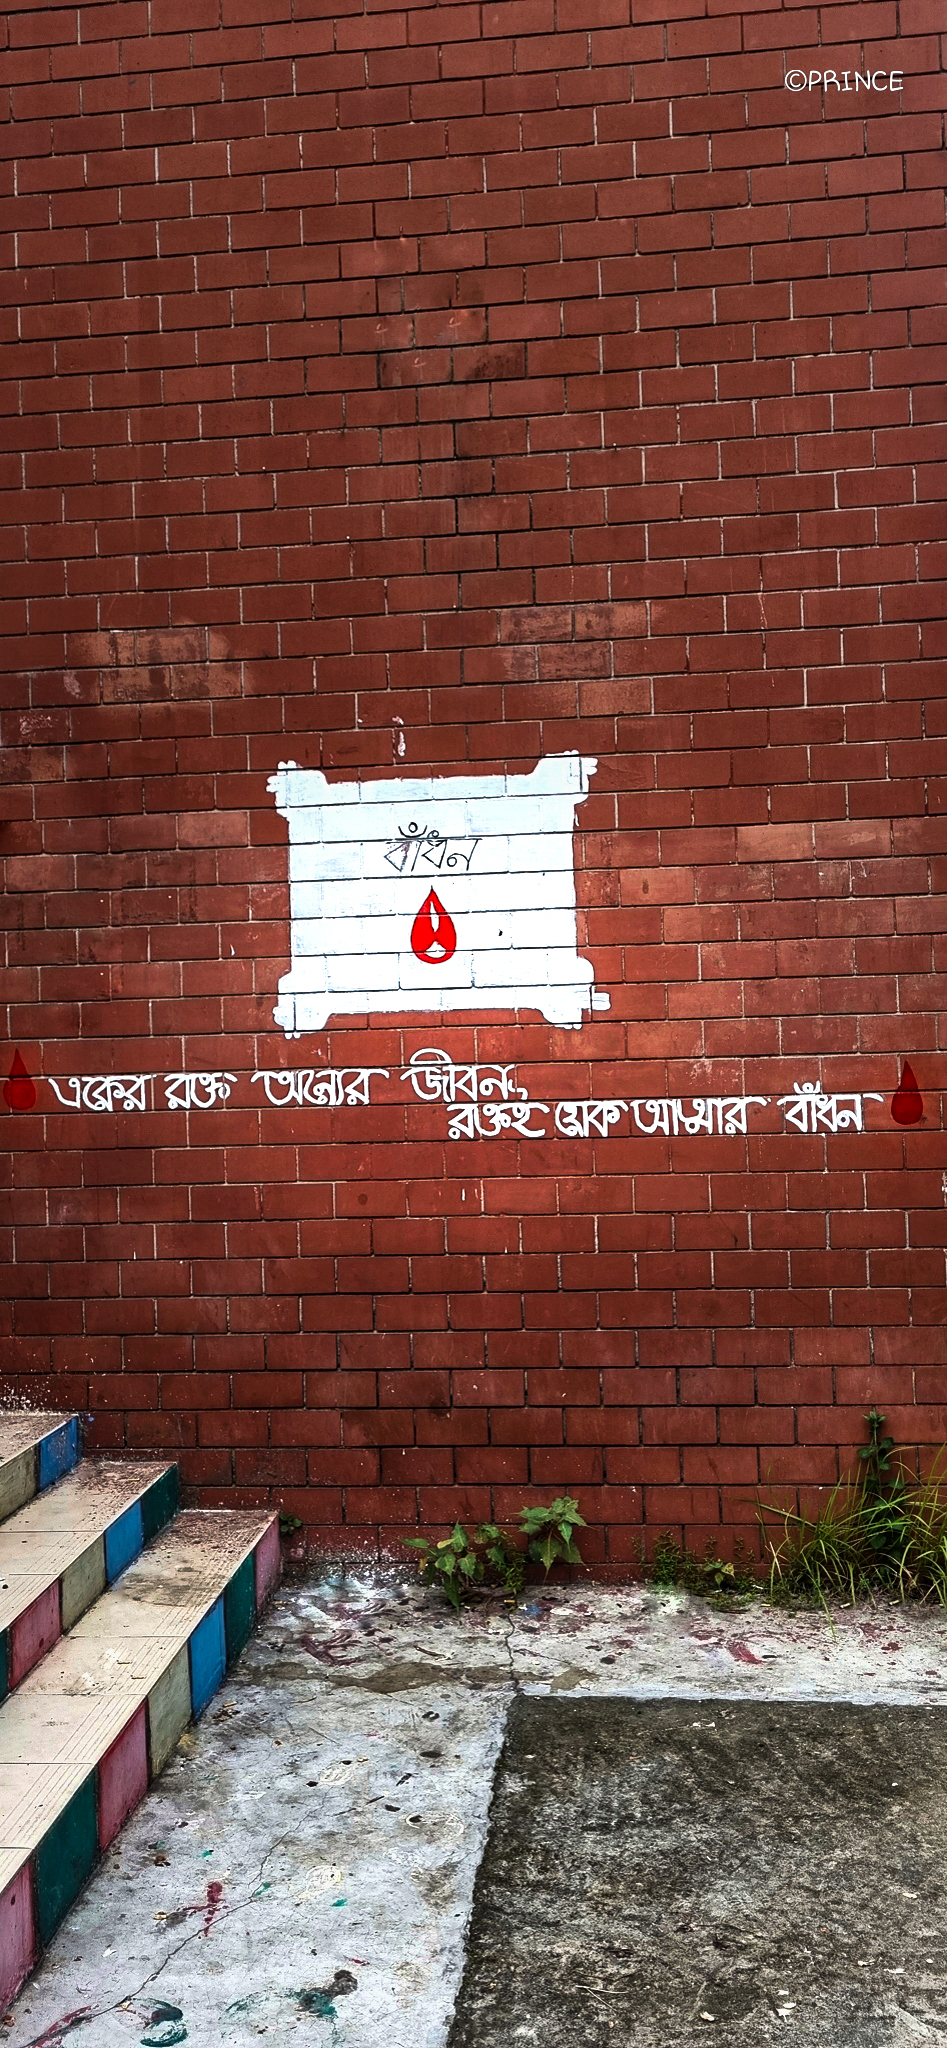 ©PRINCE
বাঁধন
একের রক্ত অন্যের জীবন,
রক্তই হোক আত্মার বাঁধন